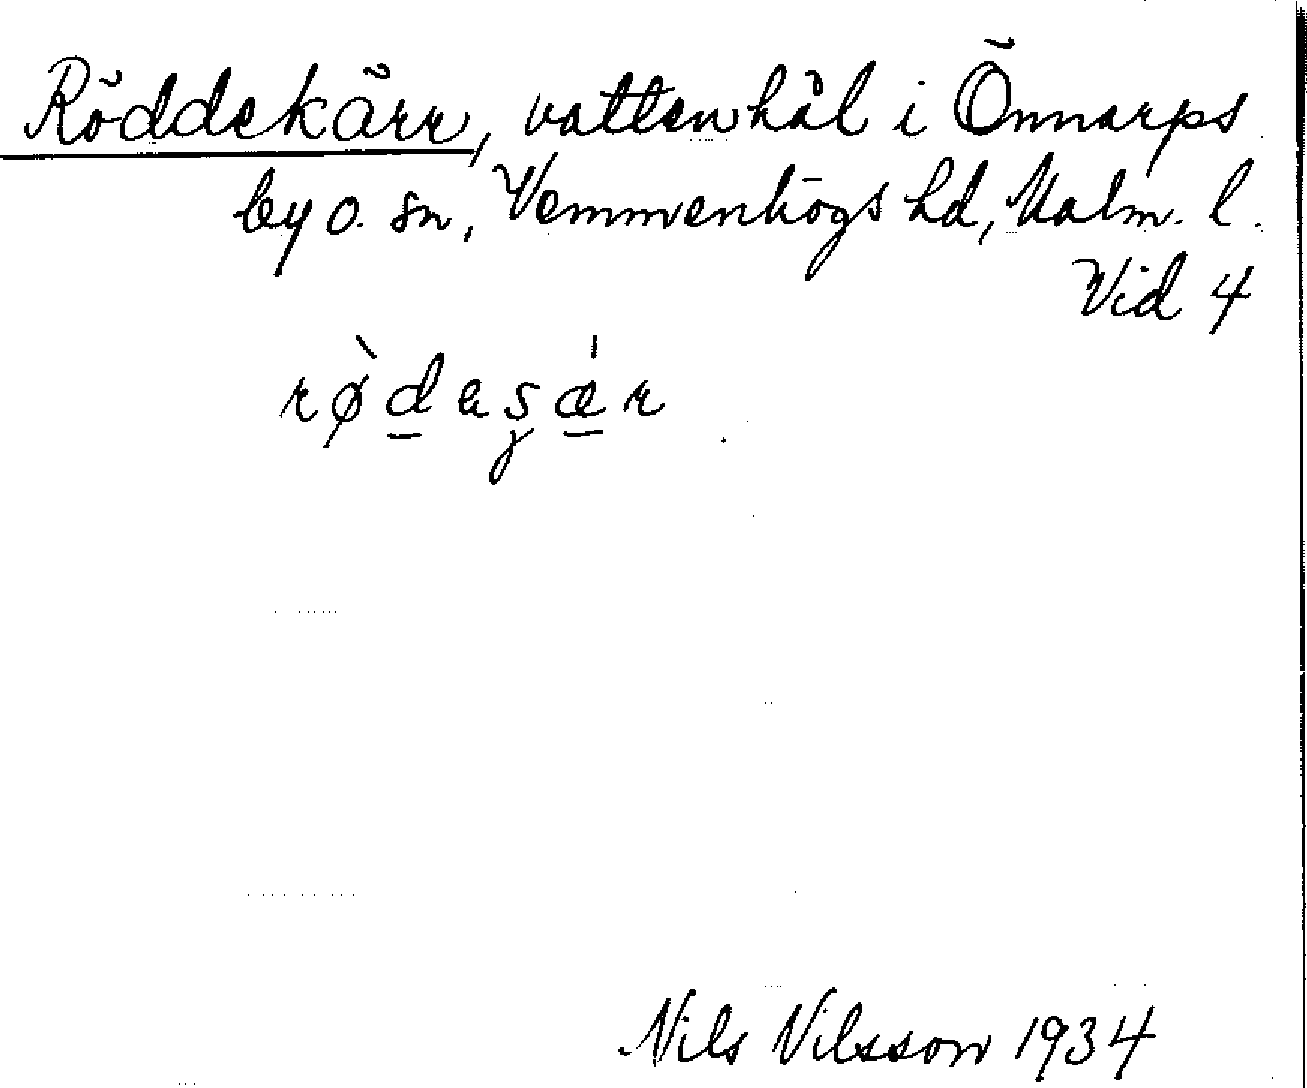 Röddekärr, vattenhål i Önnarps
by o. sn, Vemmenhögs hd, Malm. l.
Vid 4
rø̀d̲esǽ̲r
Nils Nilsson 1934